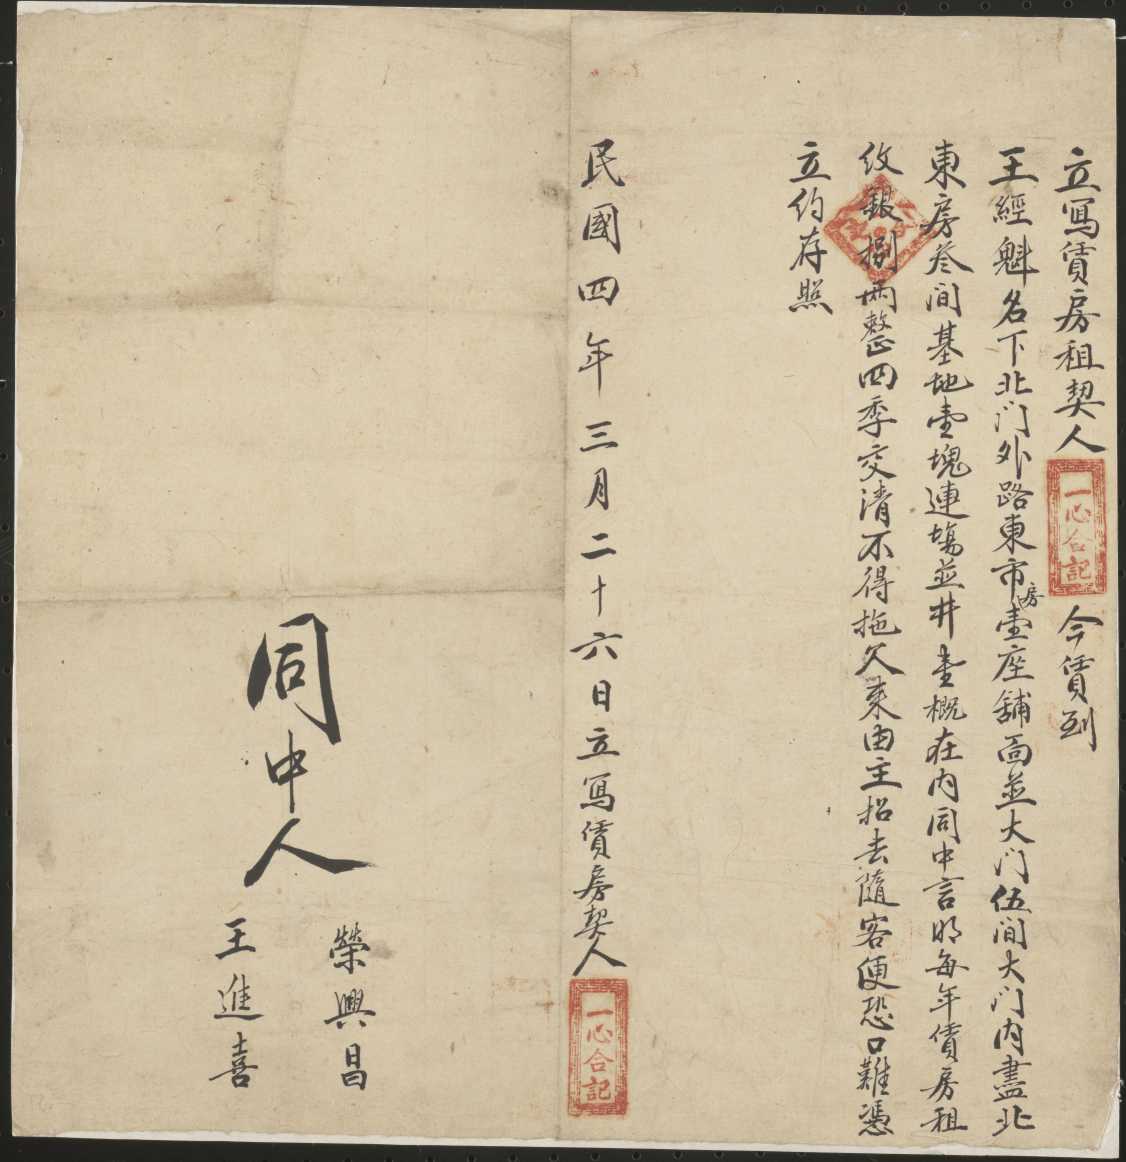 立寫賃房租契人 一心合記 今賃到
王經魁名下北门外路東市房壹座舖面並大门伍间大门内盡北
東房叁间基地壹塊連塲並井壹概在内同中言明每年賃房租
纹銀捌两整四季交清不得拖欠来由主招去隨客便恐口難憑
立约存照
民國四年三月二十六日立寫賃房契人 一心合記
同中人
榮興昌
王進喜